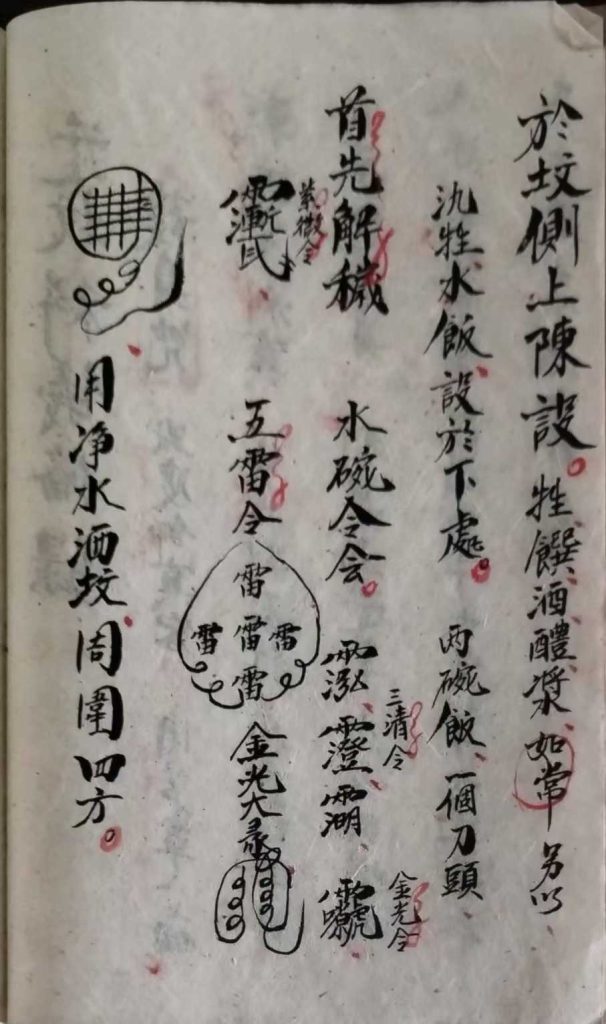 於坟側上陳設。牲饌酒醴漿如常另以
氿牲水飯設於下處。両碗飯、一個刀頭
首先解穢 水碗令会。
三清令
金光令
紫微令
五雷令 雷 雷 雷 雷 雷 金光大
用净水洒坟、周圍四方。